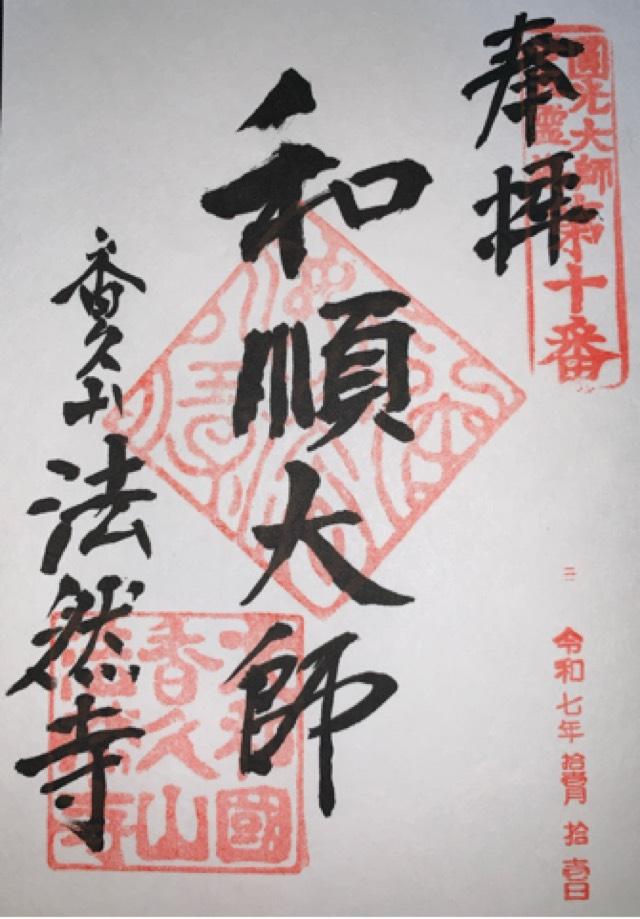 奉拝
圓光大師
霊
第十番
和順大師
香久山
法然寺
大和國
香久山
法然寺
令和七年拾壹月拾壹日